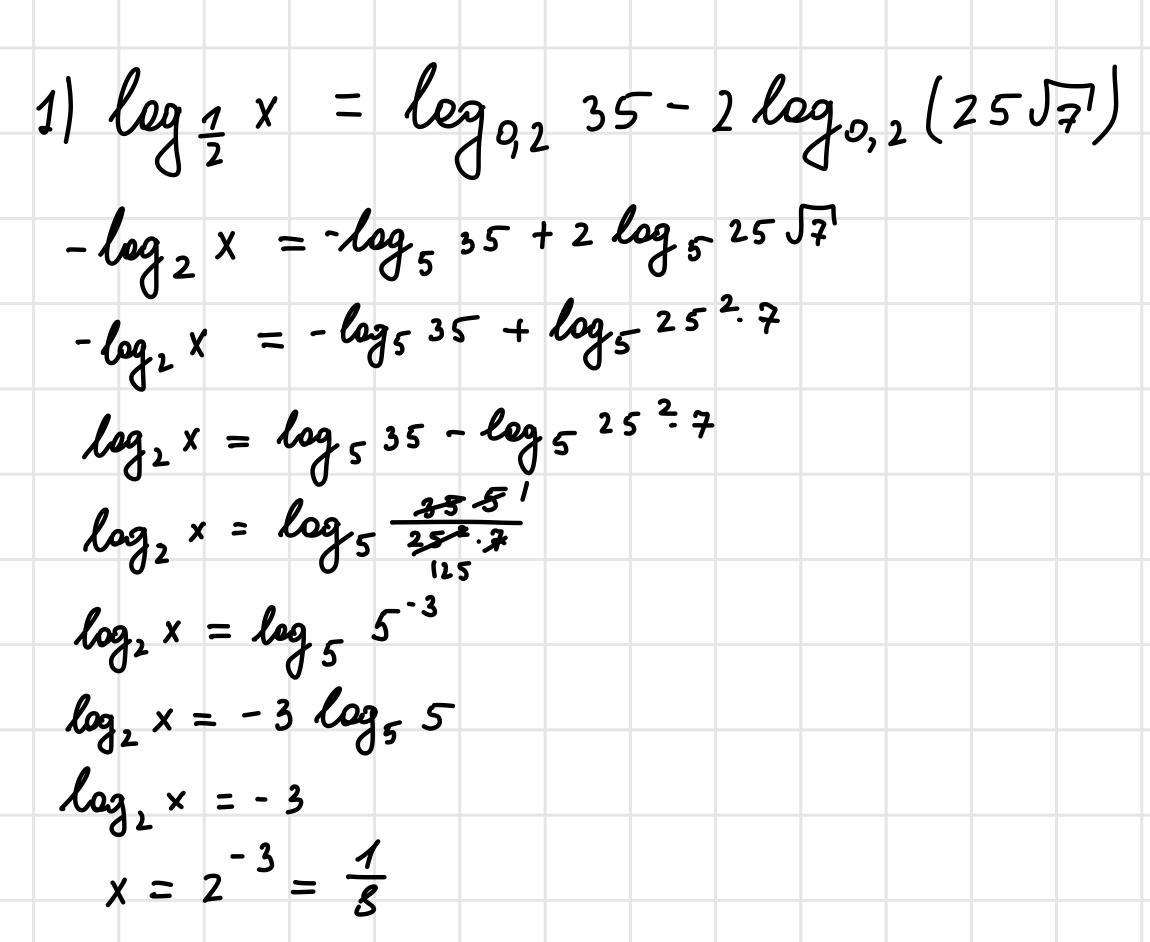 1) log_{1/2} x = log_{0,2} 35 - 2 log_{0,2} (25√7)
-log_2 x = -log_5 35 + 2 log_5 25√7
-log_2 x = -log_5 35 + log_5 25^2 · 7
log_2 x = log_5 35 - log_5 25^2 · 7
log_2 x = log_5 (35 5 1)/(25^2 · 7 125)
log_2 x = log_5 5^{-3}
log_2 x = -3 log_5 5
log_2 x = -3
x = 2^{-3} = 1/8